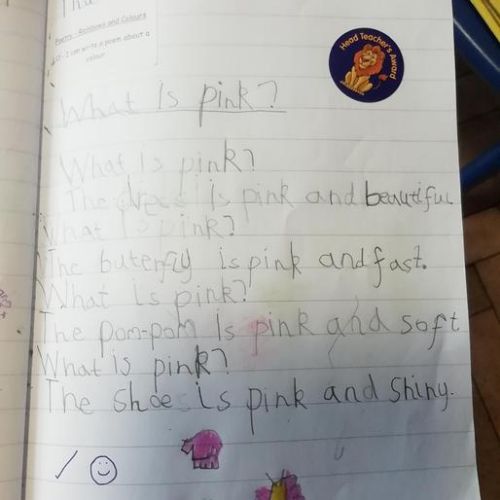 Poetry - Rainbows and Colours
LO - I can write a poem about a
colour
Head Teacher's Award
What is pink?
What is pink?
The dress is pink and beautiful
What is pink?
The buterfly is pink and fast.
What is pink?
The pom-pom is pink and soft
What is pink?
The shoe is pink and shiny.